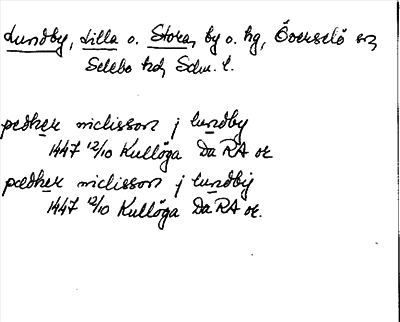 Lundby, Lilla o. Stora, by o. hg, Överselö sn,
Selebo hd, Södm. l.
pædher niclisson j lundby
1447 12/10 Kullöga Da RA or
pædher niclisson j lundby
1447 12/10 Kullöga Da RA or.